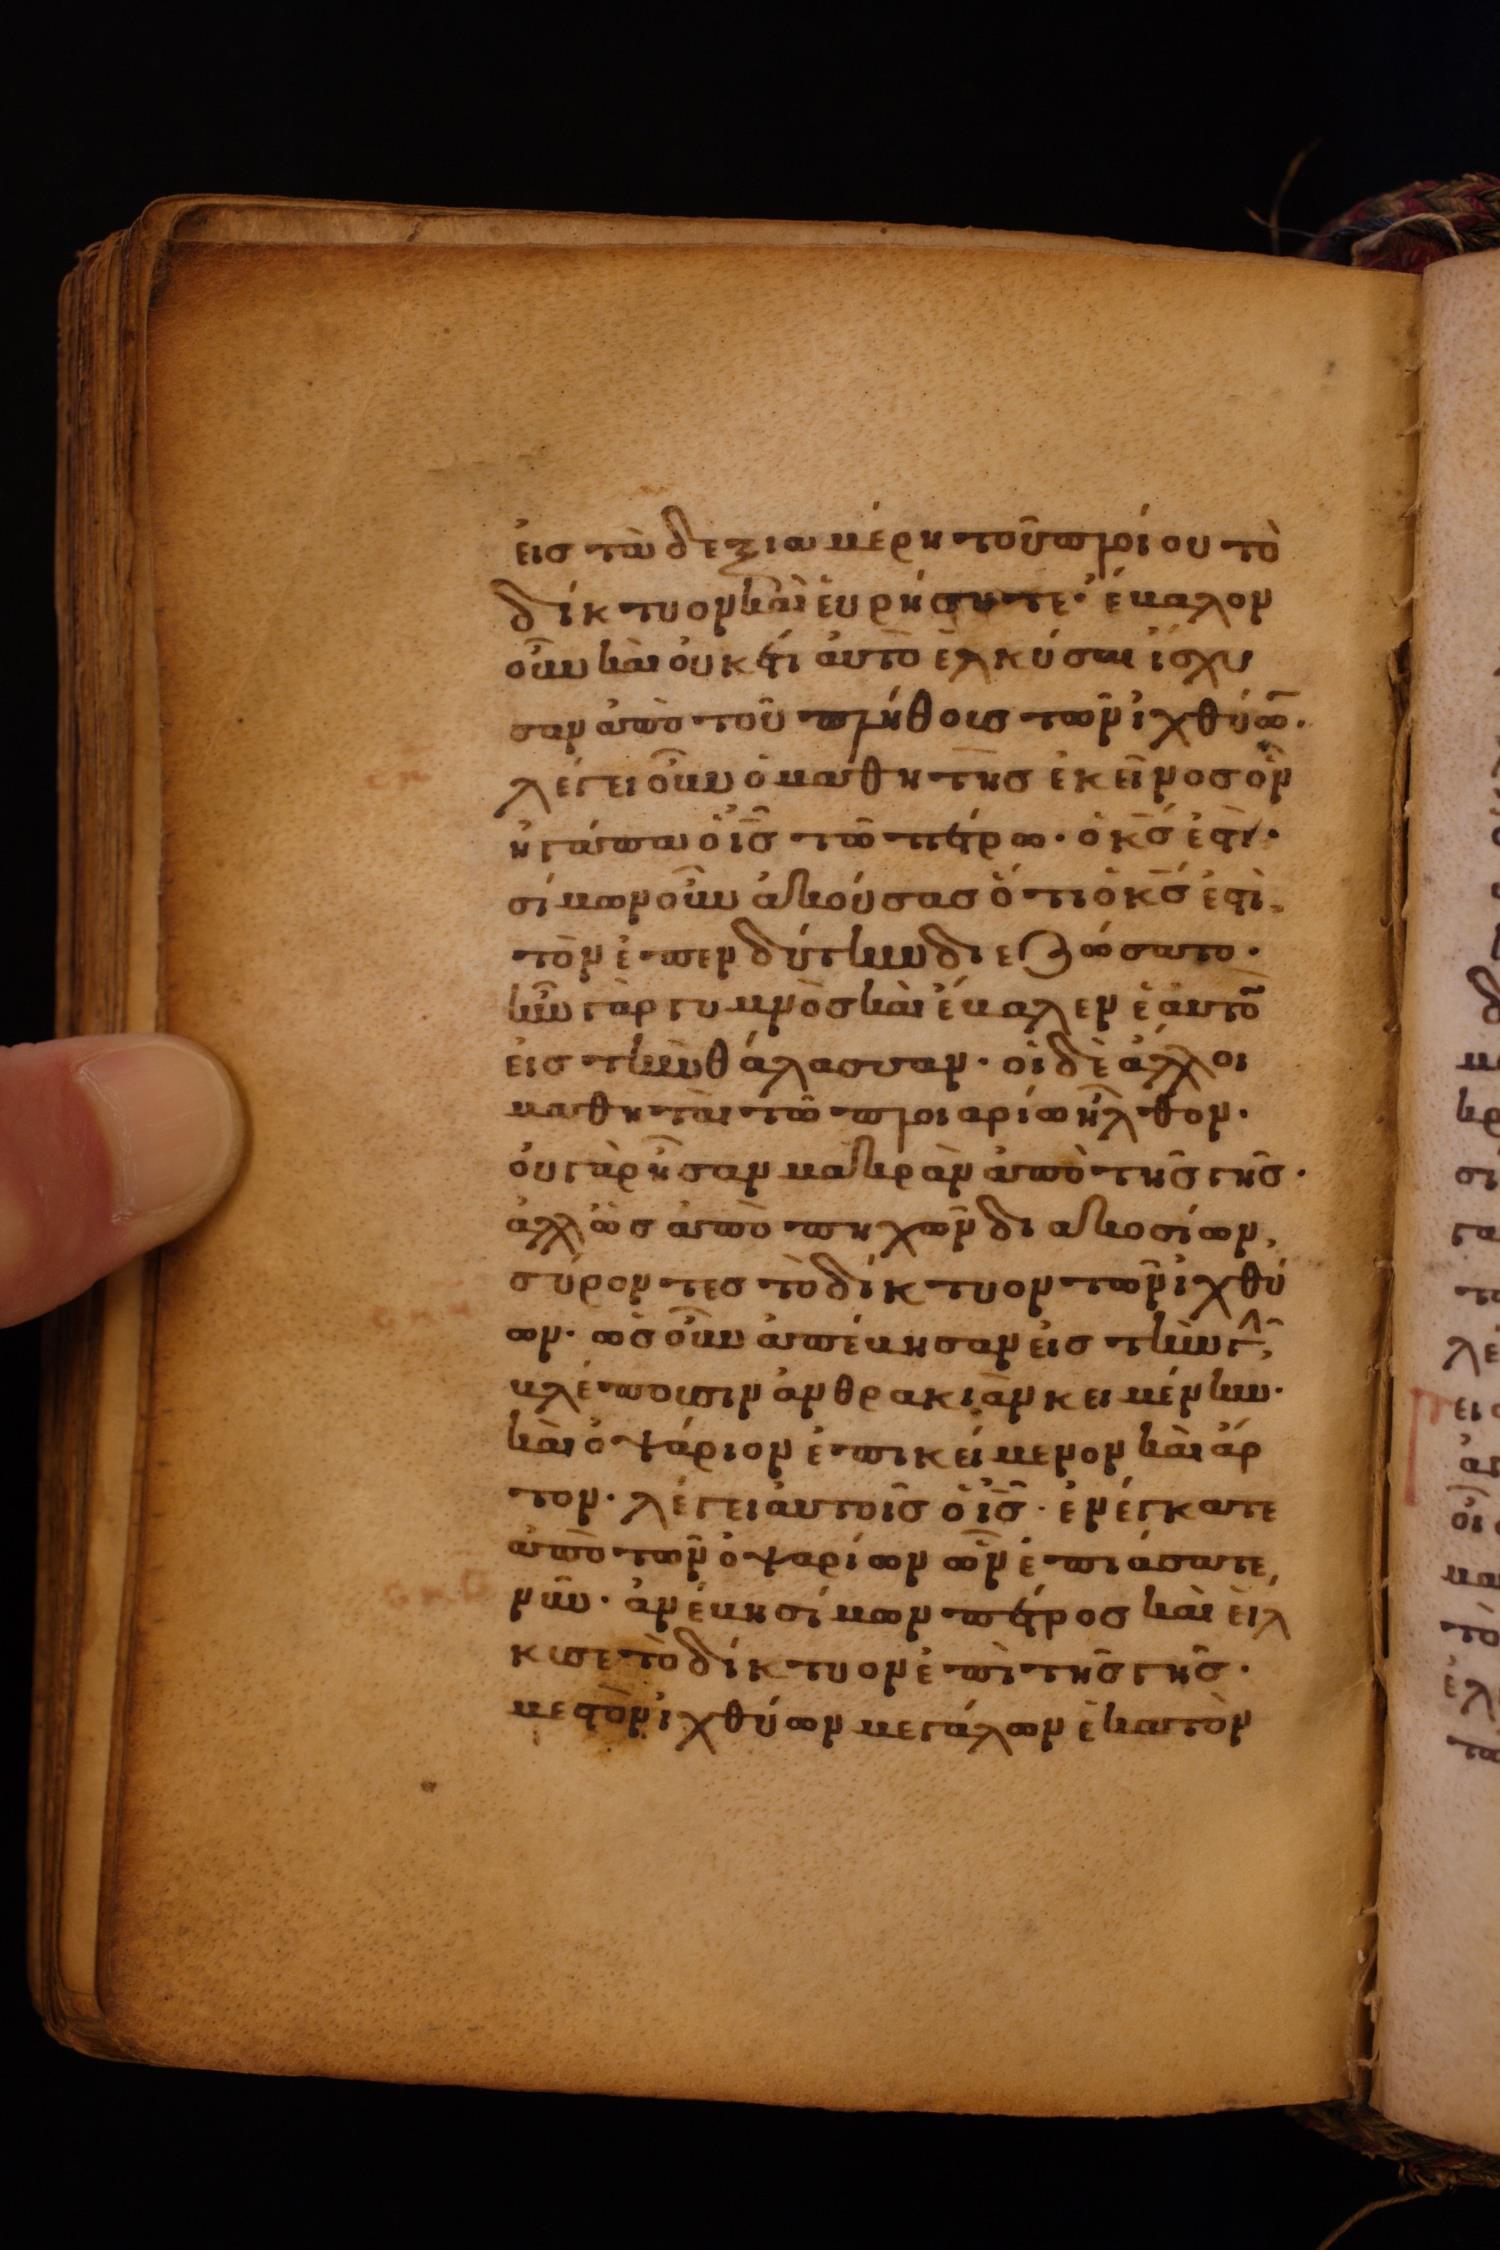 εἰς τὰ δεξια μέρη τοῦ πλοίου τὸ
δίκτυον καὶ εὑρήσητε· ἔβαλον
οὖν καὶ οὐκ ἔτι ἀυτὸ ἑλκύσαι ἴσχυ
σαν ἀπὸ τοῦ πλήθους τῶν ἰχθύω̅·
λέγει οὖν ὁ μαθητης ἐκεῖνος ὃν
ἠγάπα ὁ ι̅ς̅ τῶ πέτρω· ὁ κ̅ς̅ ἐστὶ·
σίμων οὖν ἀκούσας ὅτι ὁ κ̅ς̅ ἐστὶ,
τὸν ἐπενδύτην διεζώσατο·
ἦν γὰρ γυμνὸς καὶ ἔβαλεν ἑαυτο̅
εἰς τὴν θάλασσαν· οἱ δὲ ἄλλοι
μαθηταὶ τῶ πλοιαρίω ἦλθον·
οὐ γὰρ ἦσαν μακρὰν ἀπὸ τῆς γῆς·
ἀλλ ὡς ἀπὸ πηχῶν διακοσίων,
σύροντες τὸ δίκτυον τῶν ἰχθύ
ων· ὡς οὖν ἀπέβησαν εἰς τὴν γ̑,
βλέπουσιν ἀνθρακιὰν κειμένην·
καὶ ὀψάριον ἐπικείμενον καὶ ἄρ
τον· λέγει ἀυτοῖς ὁ ι̅ς̅· ἐνέγκατε
ἀπὸ τῶν ὀψαρίων ὧν ἐπιάσατε,
νῦν· ἀνέβη σίμων πέτρος καὶ εἵλ
κυσε τὸ δίκτυον ἐπὶ τῆς γῆς·
μεστὸν ἰχθύων μεγάλων ἑκατὸν